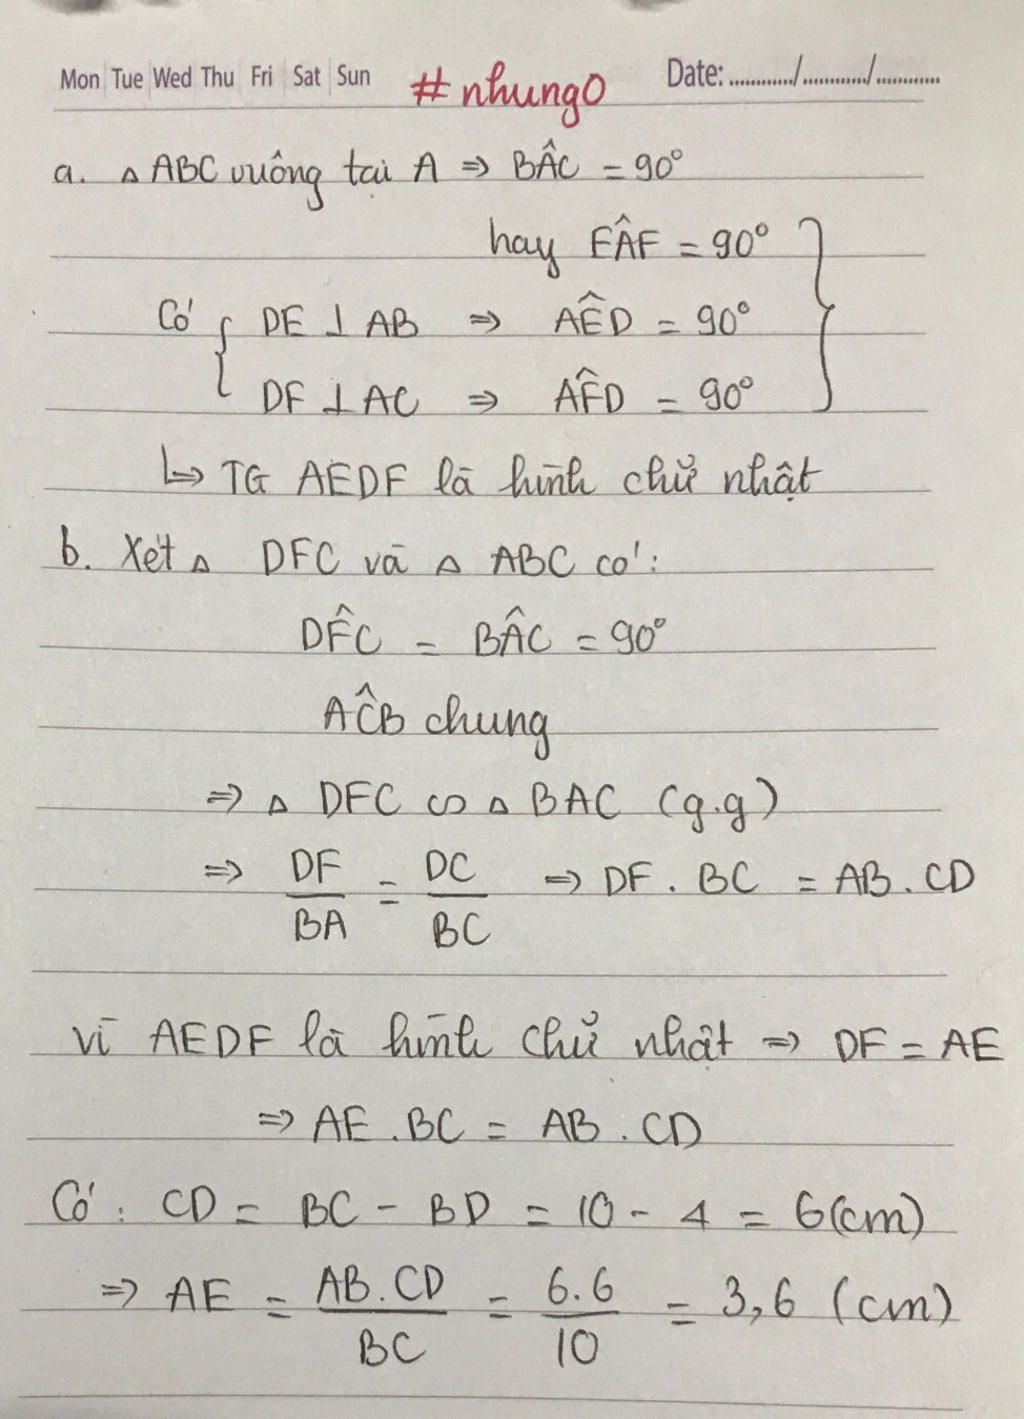 Mon Tue Wed Thu Fri Sat Sun #nhung0 Date: ............/............/............
a. △ ABC vuông tại A => BÂC = 90°
hay EÂF = 90°
Có { DE ⊥ AB => AÊD = 90°
DF ⊥ AC => AF̂D = 90° }
↳ TG AEDF là hình chữ nhật
b. Xét △ DFC và △ ABC có:
DF̂C = BÂC = 90°
AĈB chung
=> △ DFC ∽ △ BAC (g.g)
=> DF/BA = DC/BC => DF . BC = AB . CD
Vì AEDF là hình chữ nhật => DF = AE
=> AE . BC = AB . CD
Có : CD = BC - BD = 10 - 4 = 6(cm)
=> AE = AB.CD/BC = 6.6/10 = 3,6 (cm)